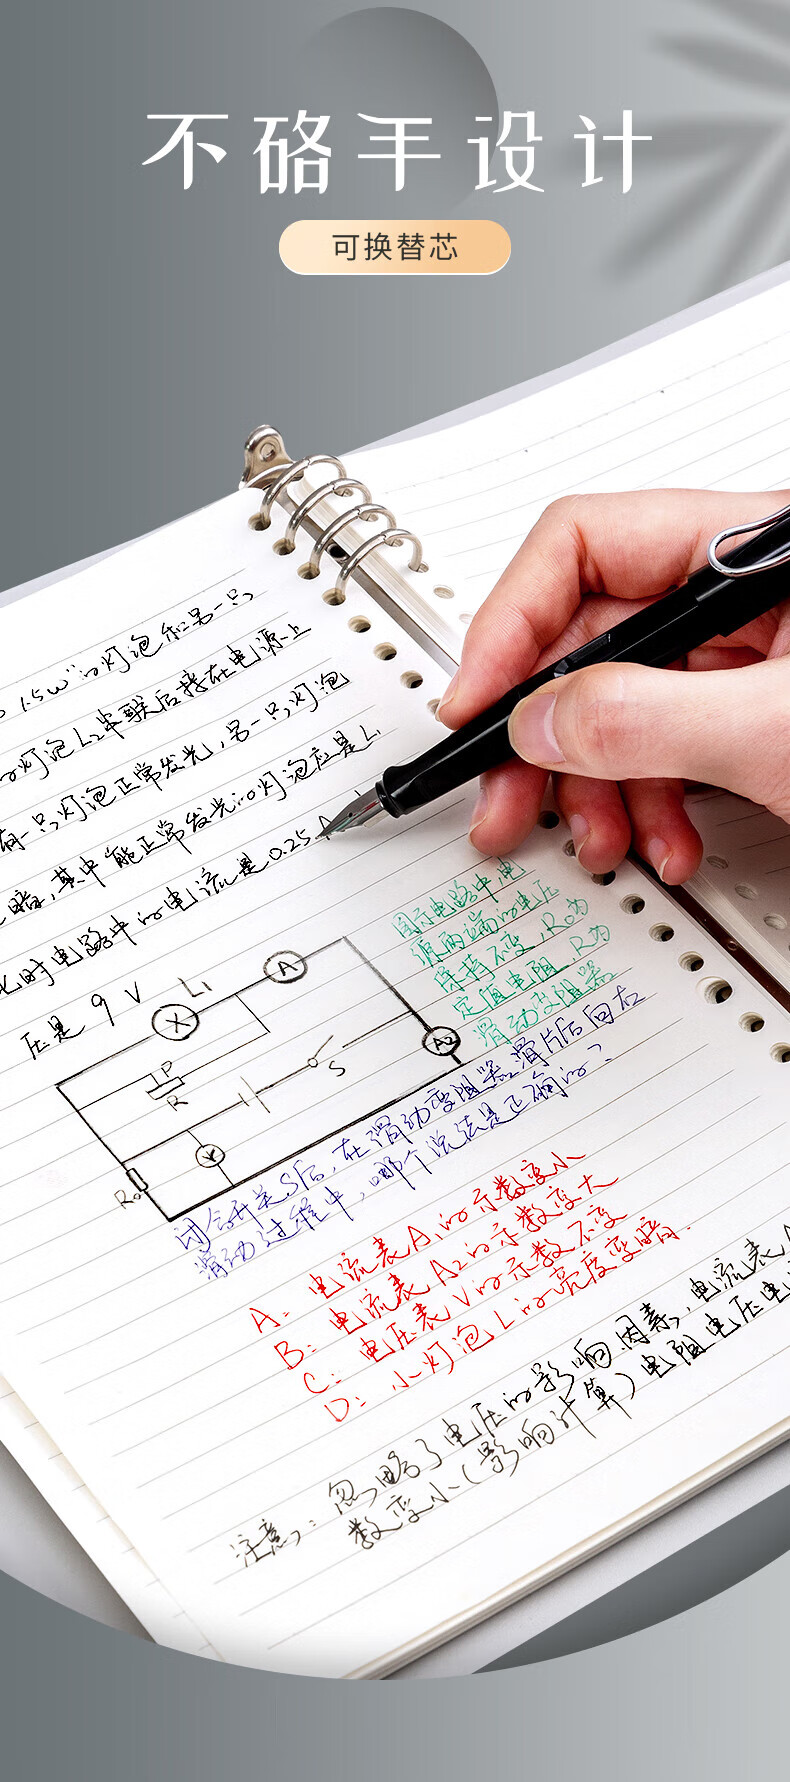 不硌手设计
可换替芯
1.5W"的灯泡和另一只
灯泡L2串联后接在电源上
有一只灯泡正常发光,另一只灯泡
暗,其中能正常发光的灯泡应是L1
此时电路中的电流是0.25A
压是 9 V
L1
A
X
P
R
S
A2
V
R0
图示电路中,电
源两端的电压
保持不变,R0为
定值电阻,R为
滑动变阻器
闭合开关S后,在滑动变阻器滑片后向右
滑动过程中,哪个说法是正确的?
A: 电流表A1的示数变小
B: 电流表A2的示数变大
C: 电压表V的示数不变
D: 小灯泡L的亮度变暗.
注意: 忽略了电压的影响因素, 电流表A
数变小(影响计算)电阻电压电